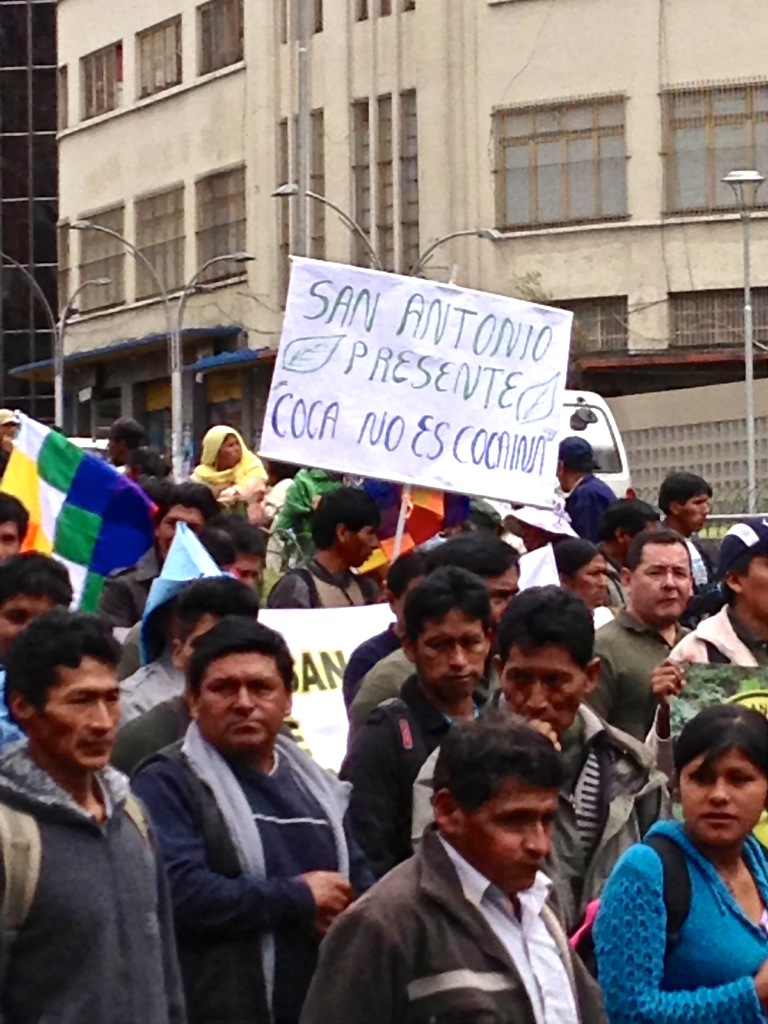 SAN ANTONIO
PRESENTE
"COCA NO ES COCAINA"
SAN